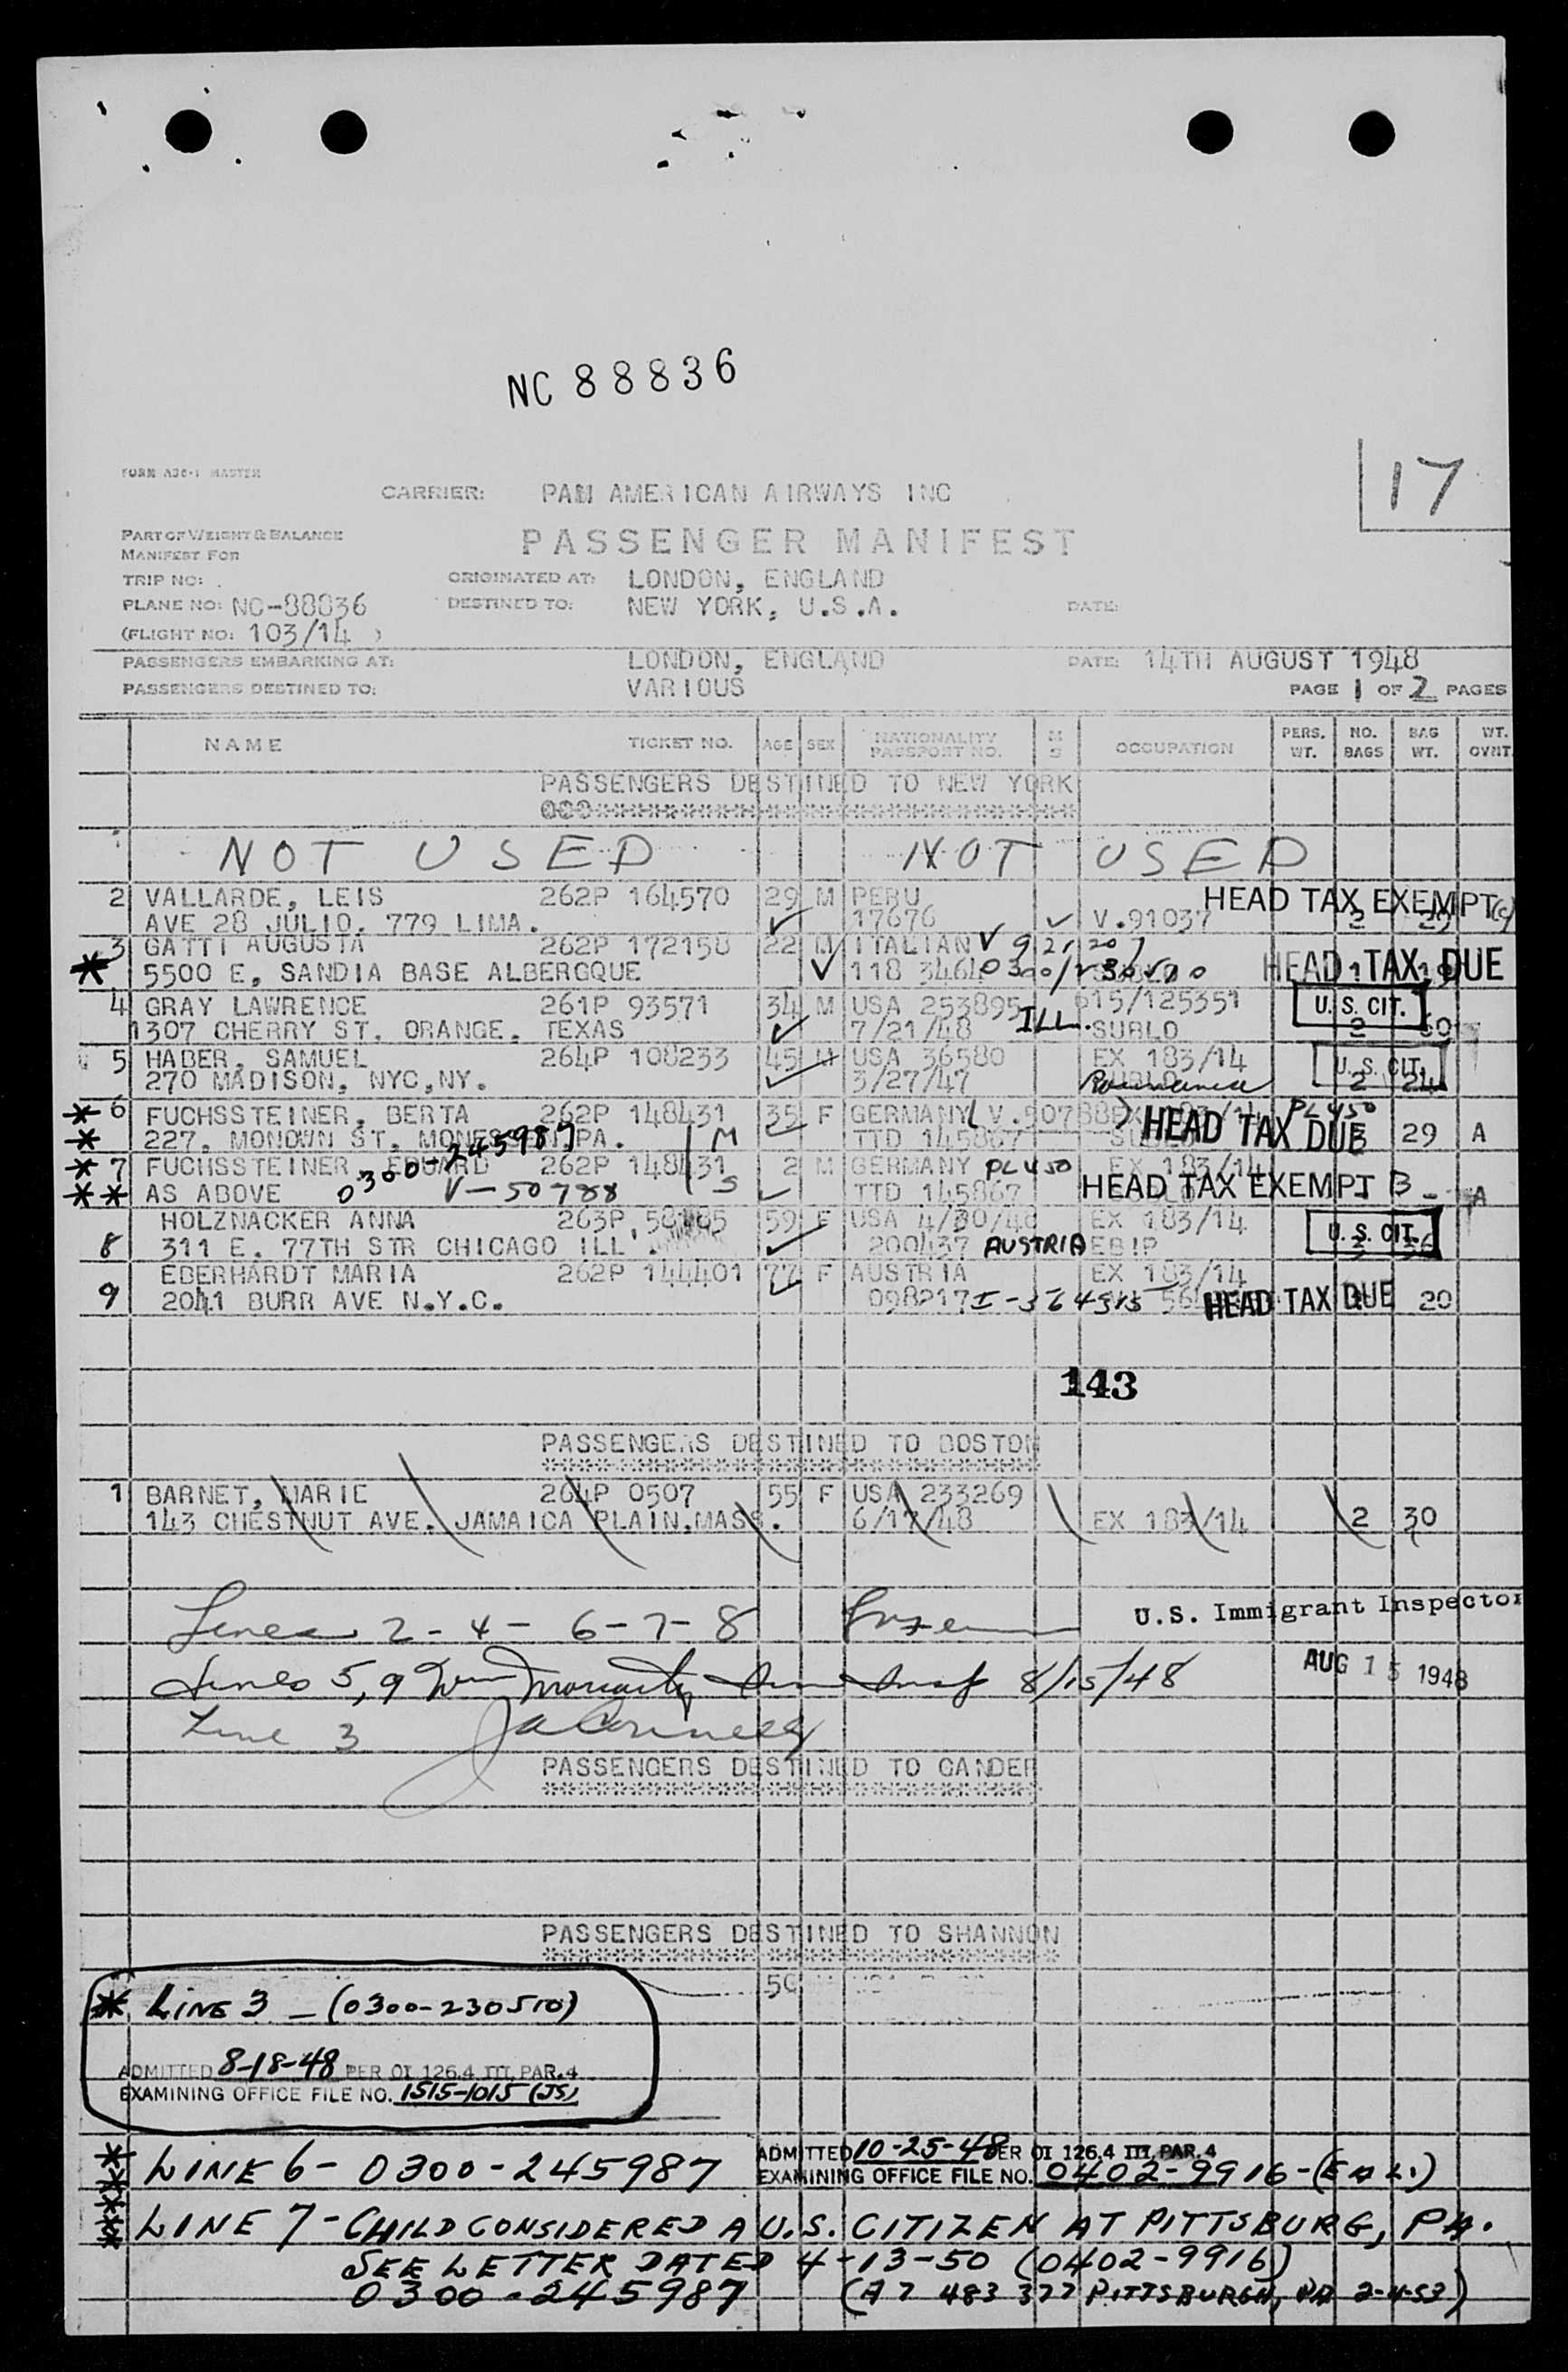 NC 88836
FORM A36-1 MASTER
17
CARRIER: PAN AMERICAN AIRWAYS INC
PART OF WEIGHT & BALANCE
MANIFEST FOR
PASSENGER MANIFEST
TRIP NO: ORIGINATED AT: LONDON, ENGLAND
PLANE NO: NC-88836 DESTINED TO: NEW YORK, U.S.A. DATE:
(FLIGHT NO: 103/14 )
PASSENGERS EMBARKING AT: LONDON, ENGLAND DATE: 14TH AUGUST 1948
PASSENGERS DESTINED TO: VARIOUS PAGE 1 OF 2 PAGES
NAME TICKET NO. AGE SEX NATIONALITY PASSPORT NO. M S OCCUPATION PERS. WT. NO. BAGS BAG WT. WT. OVNT.
PASSENGERS DESTINED TO NEW YORK
NOT USED NOT USED
2 VALLARDE, LEIS 262P 164570 29 M PERU HEAD TAX EXEMPT (c)
AVE 28 JULIO. 779 LIMA. 17676 V.91037 2
3 GATTI AUGUSTA 262P 172158 22 M ITALIAN V
* 5500 E, SANDIA BASE ALBERCQUE 118 3464 HEAD TAX DUE
4 GRAY LAWRENCE 261P 93571 34 M USA 253895 615/125351 U. S. CIT.
1307 CHERRY ST. ORANGE. TEXAS 7/21/48 ILL. SUBLO 2
5 HABER, SAMUEL 264P 108233 45 M USA 36580 EX 183/14 U. S. CIT.
270 MADISON, NYC,NY. 3/27/47 Roumania 2 24
* 6 FUCHSSTEINER, BERTA 262P 148431 35 F GERMANY (V.50788) PL450
* 227, MONOWN ST, PA. M TTD 145867 HEAD TAX DUE 29 A
* 7 FUCHSSTEINER, EDUARD 0300-245987 262P 148431 2 M GERMANY PL450 EX 183/14
** AS ABOVE V-50788 S TTD 145867 HEAD TAX EXEMPT B A
HOLZNACKER ANNA 263P 59 F USA 4/30/48 EX 183/14 U. S. CIT.
8 311 E. 77TH STR CHICAGO ILL. 200437 AUSTRIA 36
EBERHARDT MARIA 262P 144401 77 F AUSTRIA EX 183/14
9 2041 BURR AVE N.Y.C. 098217 HEAD TAX DUE 20
143
PASSENGERS DESTINED TO BOSTON
1 BARNET, MARIE 264P 0507 55 F USA 233269
143 CHESTNUT AVE. JAMAICA PLAIN.MASS. 6/17/48 EX 183/14 2 30
Lines 2-4-6-7-8 U.S. Immigrant Inspector
Lines 5,9 Wm Moriarty 8/15/48 AUG 15 1948
Line 3
PASSENGERS DESTINED TO GANDER
PASSENGERS DESTINED TO SHANNON
* LINE 3 - (0300-230510)
ADMITTED 8-18-48 PER OI 126.4 III, PAR.4
EXAMINING OFFICE FILE NO. 1515-1015 (JS)
** LINE 6 - 0300-245987 ADMITTED 10-25-48 PER OI 126.4 III, PAR.4
EXAMINING OFFICE FILE NO. 0402-9916-
LINE 7 - CHILD CONSIDERED A U.S. CITIZEN AT PITTSBURG, PA.
SEE LETTER DATED 4-13-50 (0402-9916)
0300-245987 (A7 483 377 PITTSBURGH, PA 2-4-53)